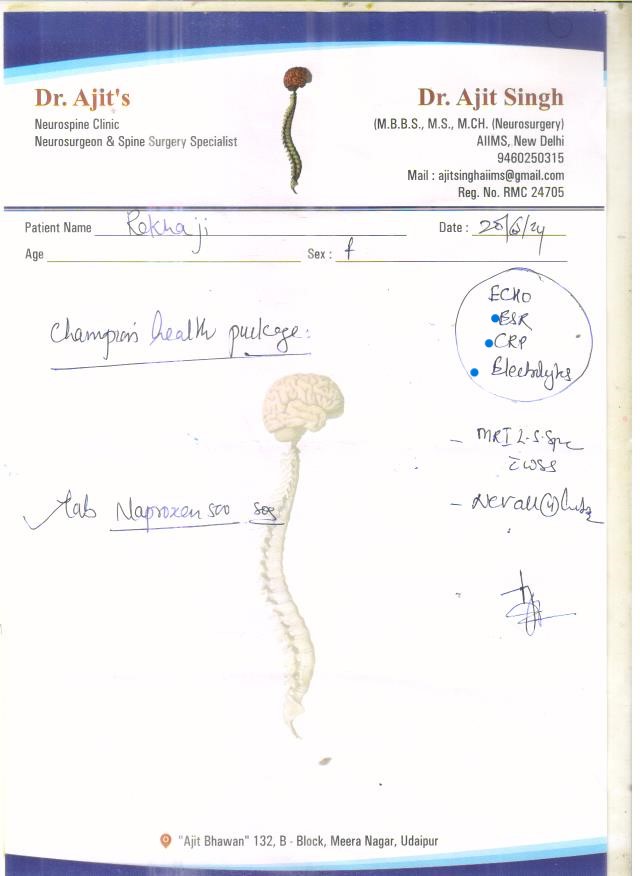 Dr. Ajit's
Neurospine Clinic
Neurosurgeon & Spine Surgery Specialist
Dr. Ajit Singh
(M.B.B.S., M.S., M.CH. (Neurosurgery)
AIIMS, New Delhi
9460250315
Mail : ajitsinghaiims@gmail.com
Reg. No. RMC 24705
Patient Name Rekha ji
Date : 28/6/24
Age
Sex : f
ECHO
ESR
CRP
Electrolytes
health package:
- MRI L-S-Spine
c̄ WSS
tab Naproxen 500 sos
"Ajit Bhawan" 132, B - Block, Meera Nagar, Udaipur